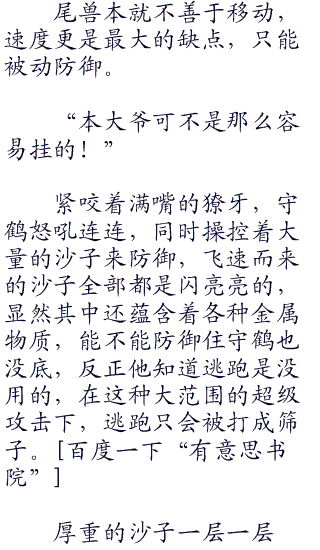 尾兽本就不善于移动，
速度更是最大的缺点，只能
被动防御。
“本大爷可不是那么容
易挂的！”
紧咬着满嘴的獠牙，守
鹤怒吼连连，同时操控着大
量的沙子来防御，飞速而来
的沙子全部都是闪亮亮的，
显然其中还蕴含着各种金属
物质，能不能防御住守鹤也
没底，反正他知道逃跑是没
用的，在这种大范围的超级
攻击下，逃跑只会被打成筛
子。[百度一下“有意思书
院”]
厚重的沙子一层一层